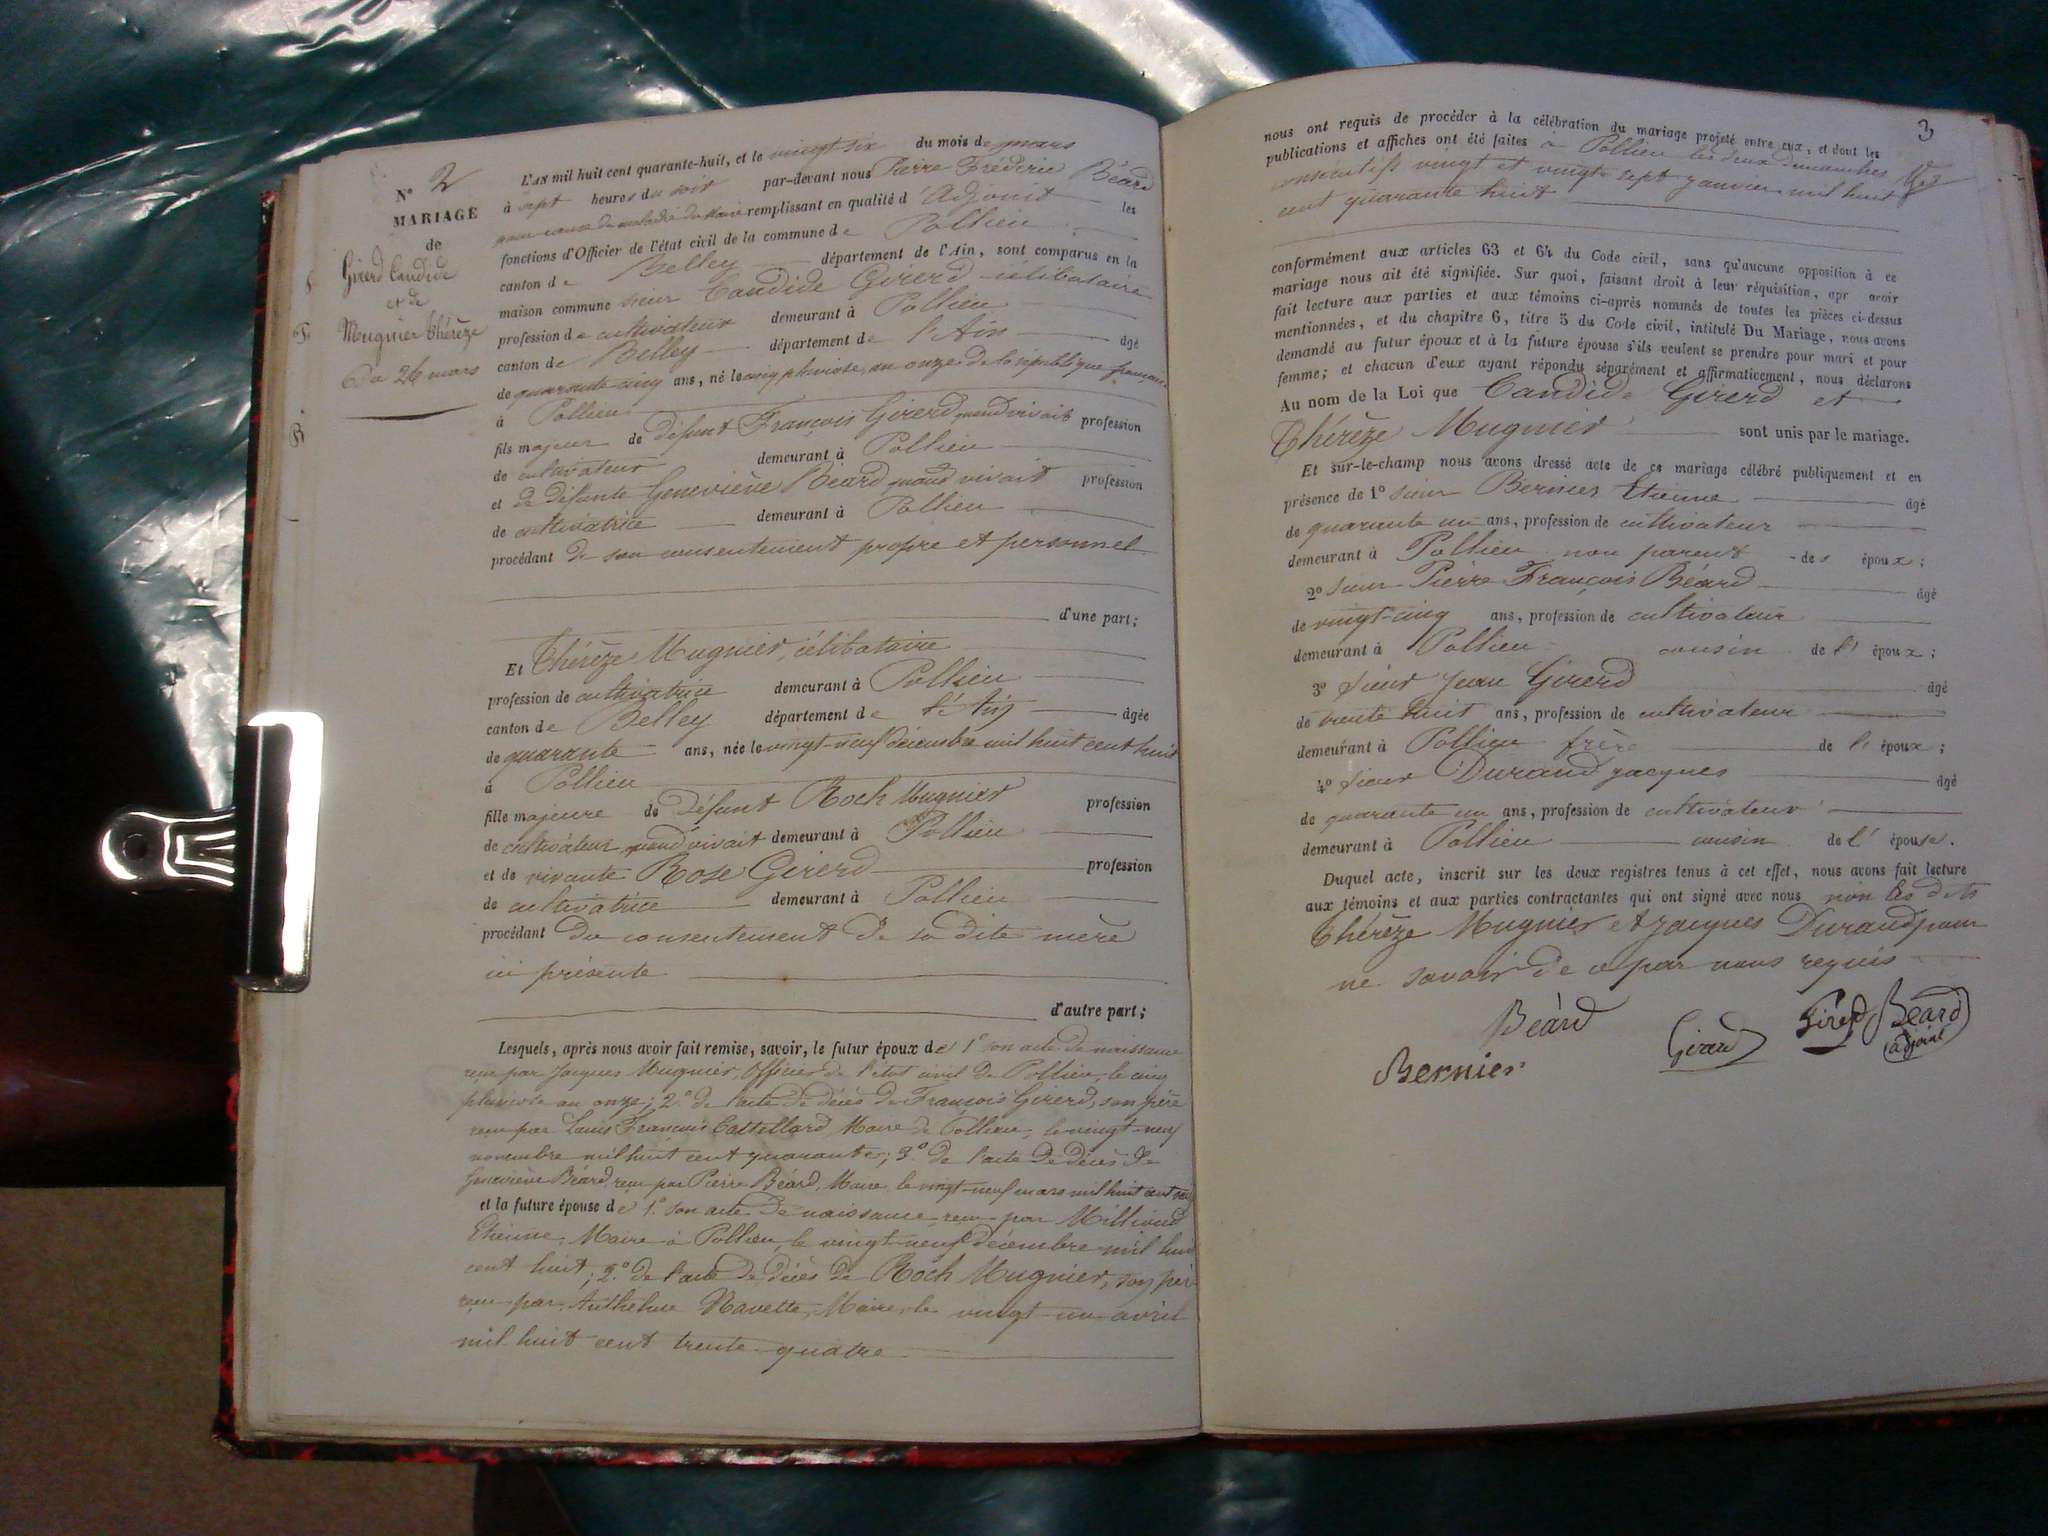 N° 2
MARIAGE
de
Girerd Candide
et de
Mugnier Thérèze
Du 26 mars
L'AN mil huit cent quarante-huit, et le vingt six du mois de mars
à sept heures du soir par-devant nous Pierre Fréderic Béard
pour cause de maladie du Maire remplissant en qualité d'Adjoint les
fonctions d'Officier de l'état civil de la commune de Pollieu
canton de Belley département de l'Ain, sont comparus en la
maison commune sieur Candide Girerd célibataire
profession de cultivateur demeurant à Pollieu
canton de Belley département de l'Ain âgé
de quarante cinq ans, né le cinq pluviose, an onze de la république française
à Pollieu
fils majeur de défunt François Girerd, quand vivait profession
de cultivateur demeurant à Pollieu
et de défunte Geneviève Béard quand vivait profession
de cultivatrice demeurant à Pollieu
procédant de son consentement propre et personnel
d'une part;
Et Thérèze Mugnier, célibataire
profession de cultivatrice demeurant à Pollieu
canton de Belley département de l'Ain âgée
de quarante ans, née le vingt-neuf décembre mil huit cent huit
à Pollieu
fille majeure de défunt Roch Mugnier profession
de cultivateur, quand vivait demeurant à Pollieu
et de vivante Rose Girerd profession
de cultivatrice demeurant à Pollieu
procédant du consentement de sa dite mère
ici présente
d'autre part;
Lesquels, après nous avoir fait remise, savoir, le futur époux de 1° son acte de naissance
reçu par Jacques Mugnier, Officier de l'état civil de Pollieu, le cinq
pluviose an onze; 2° de l'acte de décès de François Girerd, son père
reçu par Louis François Castellard Maire de Pollieu, le vingt-neuf
novembre mil huit cent quarante; 3° de l'acte de décès de
Geneviève Béard, reçu par Pierre Béard, Maire, le vingt-neuf mars mil huit cent
et la future épouse de 1° son acte de naissance reçu par Milliond
Etienne, Maire à Pollieu, le vingt-neuf décembre mil huit
cent huit; 2° de l'acte de décès de Roch Mugnier, son père
reçu par Anthelme Navette, Maire, le vingt-un avril
mil huit cent trente-quatre
3
nous ont requis de procéder à la célébration du mariage projeté entre eux, et dont les
publications et affiches ont été faites à Pollieu les deux dimanches
consécutifs vingt et vingt sept janvier mil huit
cent quarante huit
conformément aux articles 63 et 64 du Code civil, sans qu'aucune opposition à ce
mariage nous ait été signifiée. Sur quoi, faisant droit à leur réquisition, apr avoir
fait lecture aux parties et aux témoins ci-après nommés de toutes les pièces ci-dessus
mentionnées, et du chapitre 6, titre 5 du Code civil, intitulé Du Mariage, nous avons
demandé au futur époux et à la future épouse s'ils veulent se prendre pour mari et pour
femme; et chacun d'eux ayant répondu séparément et affirmativement, nous déclarons
Au nom de la Loi que Candide Girerd et
Thérèze Mugnier sont unis par le mariage.
Et sur-le-champ nous avons dressé acte de ce mariage célébré publiquement et en
présence de 1° sieur Bernier Etienne âgé
de quarante un ans, profession de cultivateur
demeurant à Pollieu non parent des époux;
2° sieur Pierre François Béard âgé
de vingt-cinq ans, profession de cultivateur
demeurant à Pollieu cousin de l'époux;
3° sieur Jean Girerd âgé
de trente huit ans, profession de cultivateur
demeurant à Pollieu frère de l'époux;
4° sieur Durand Jacques âgé
de quarante un ans, profession de cultivateur
demeurant à Pollieu cousin de l'épouse.
Duquel acte, inscrit sur les deux registres tenus à cet effet, nous avons fait lecture
aux témoins et aux parties contractantes qui ont signé avec nous non les dits
Thérèze Mugnier et Jacques Durand pour
ne savoir de ce par nous requis
Béard Girerd Girerd Béard
adjoint
Bernier